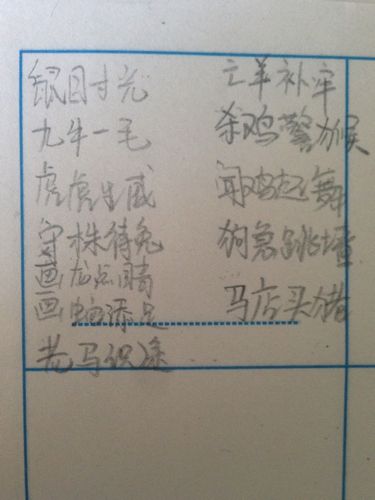 鼠目寸光
九牛一毛
虎虎生威
守株待兔
画龙点睛
画蛇添足
老马识途
亡羊补牢
杀鸡警猴
闻鸡起舞
狗急跳墙
马店买猪